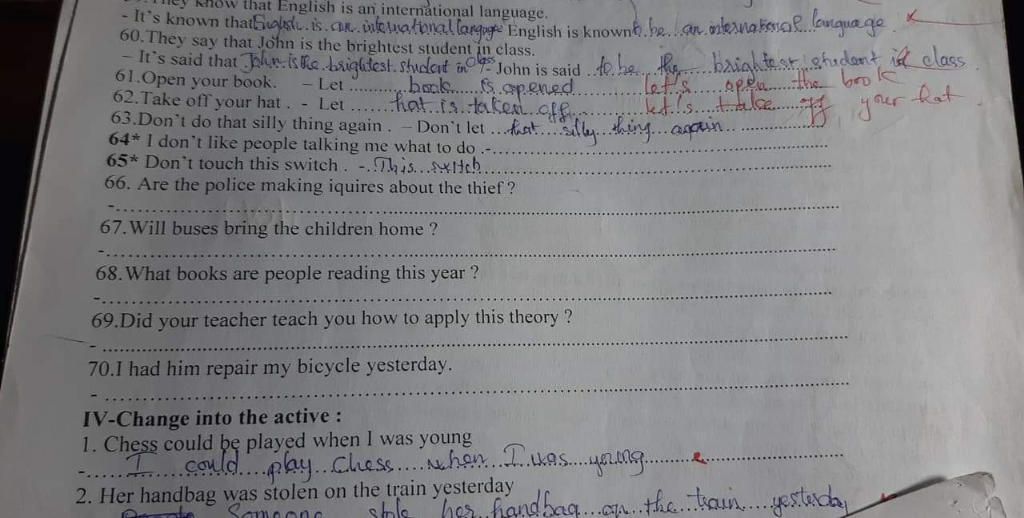 They know that English is an international language.
- It's known that English is an international language English is known to be an international language
60.They say that John is the brightest student in class.
- It's said that John is the brightest student in class - John is said to be the brightest student in class
61.Open your book. - Let ........... book is opened let's open the book
62.Take off your hat . - Let ...... hat is taken off let's take off your hat
63.Don't do that silly thing again . - Don't let ...that silly thing again.
64* I don't like people talking me what to do .-
65* Don't touch this switch . - This switch
66. Are the police making iquires about the thief ?
-
67.Will buses bring the children home ?
-
68.What books are people reading this year ?
-
69.Did your teacher teach you how to apply this theory ?
-
70.I had him repair my bicycle yesterday.
-
IV-Change into the active :
1. Chess could be played when I was young
- I could play Chess when I was young
2. Her handbag was stolen on the train yesterday
Someone stole her handbag on the train yesterday